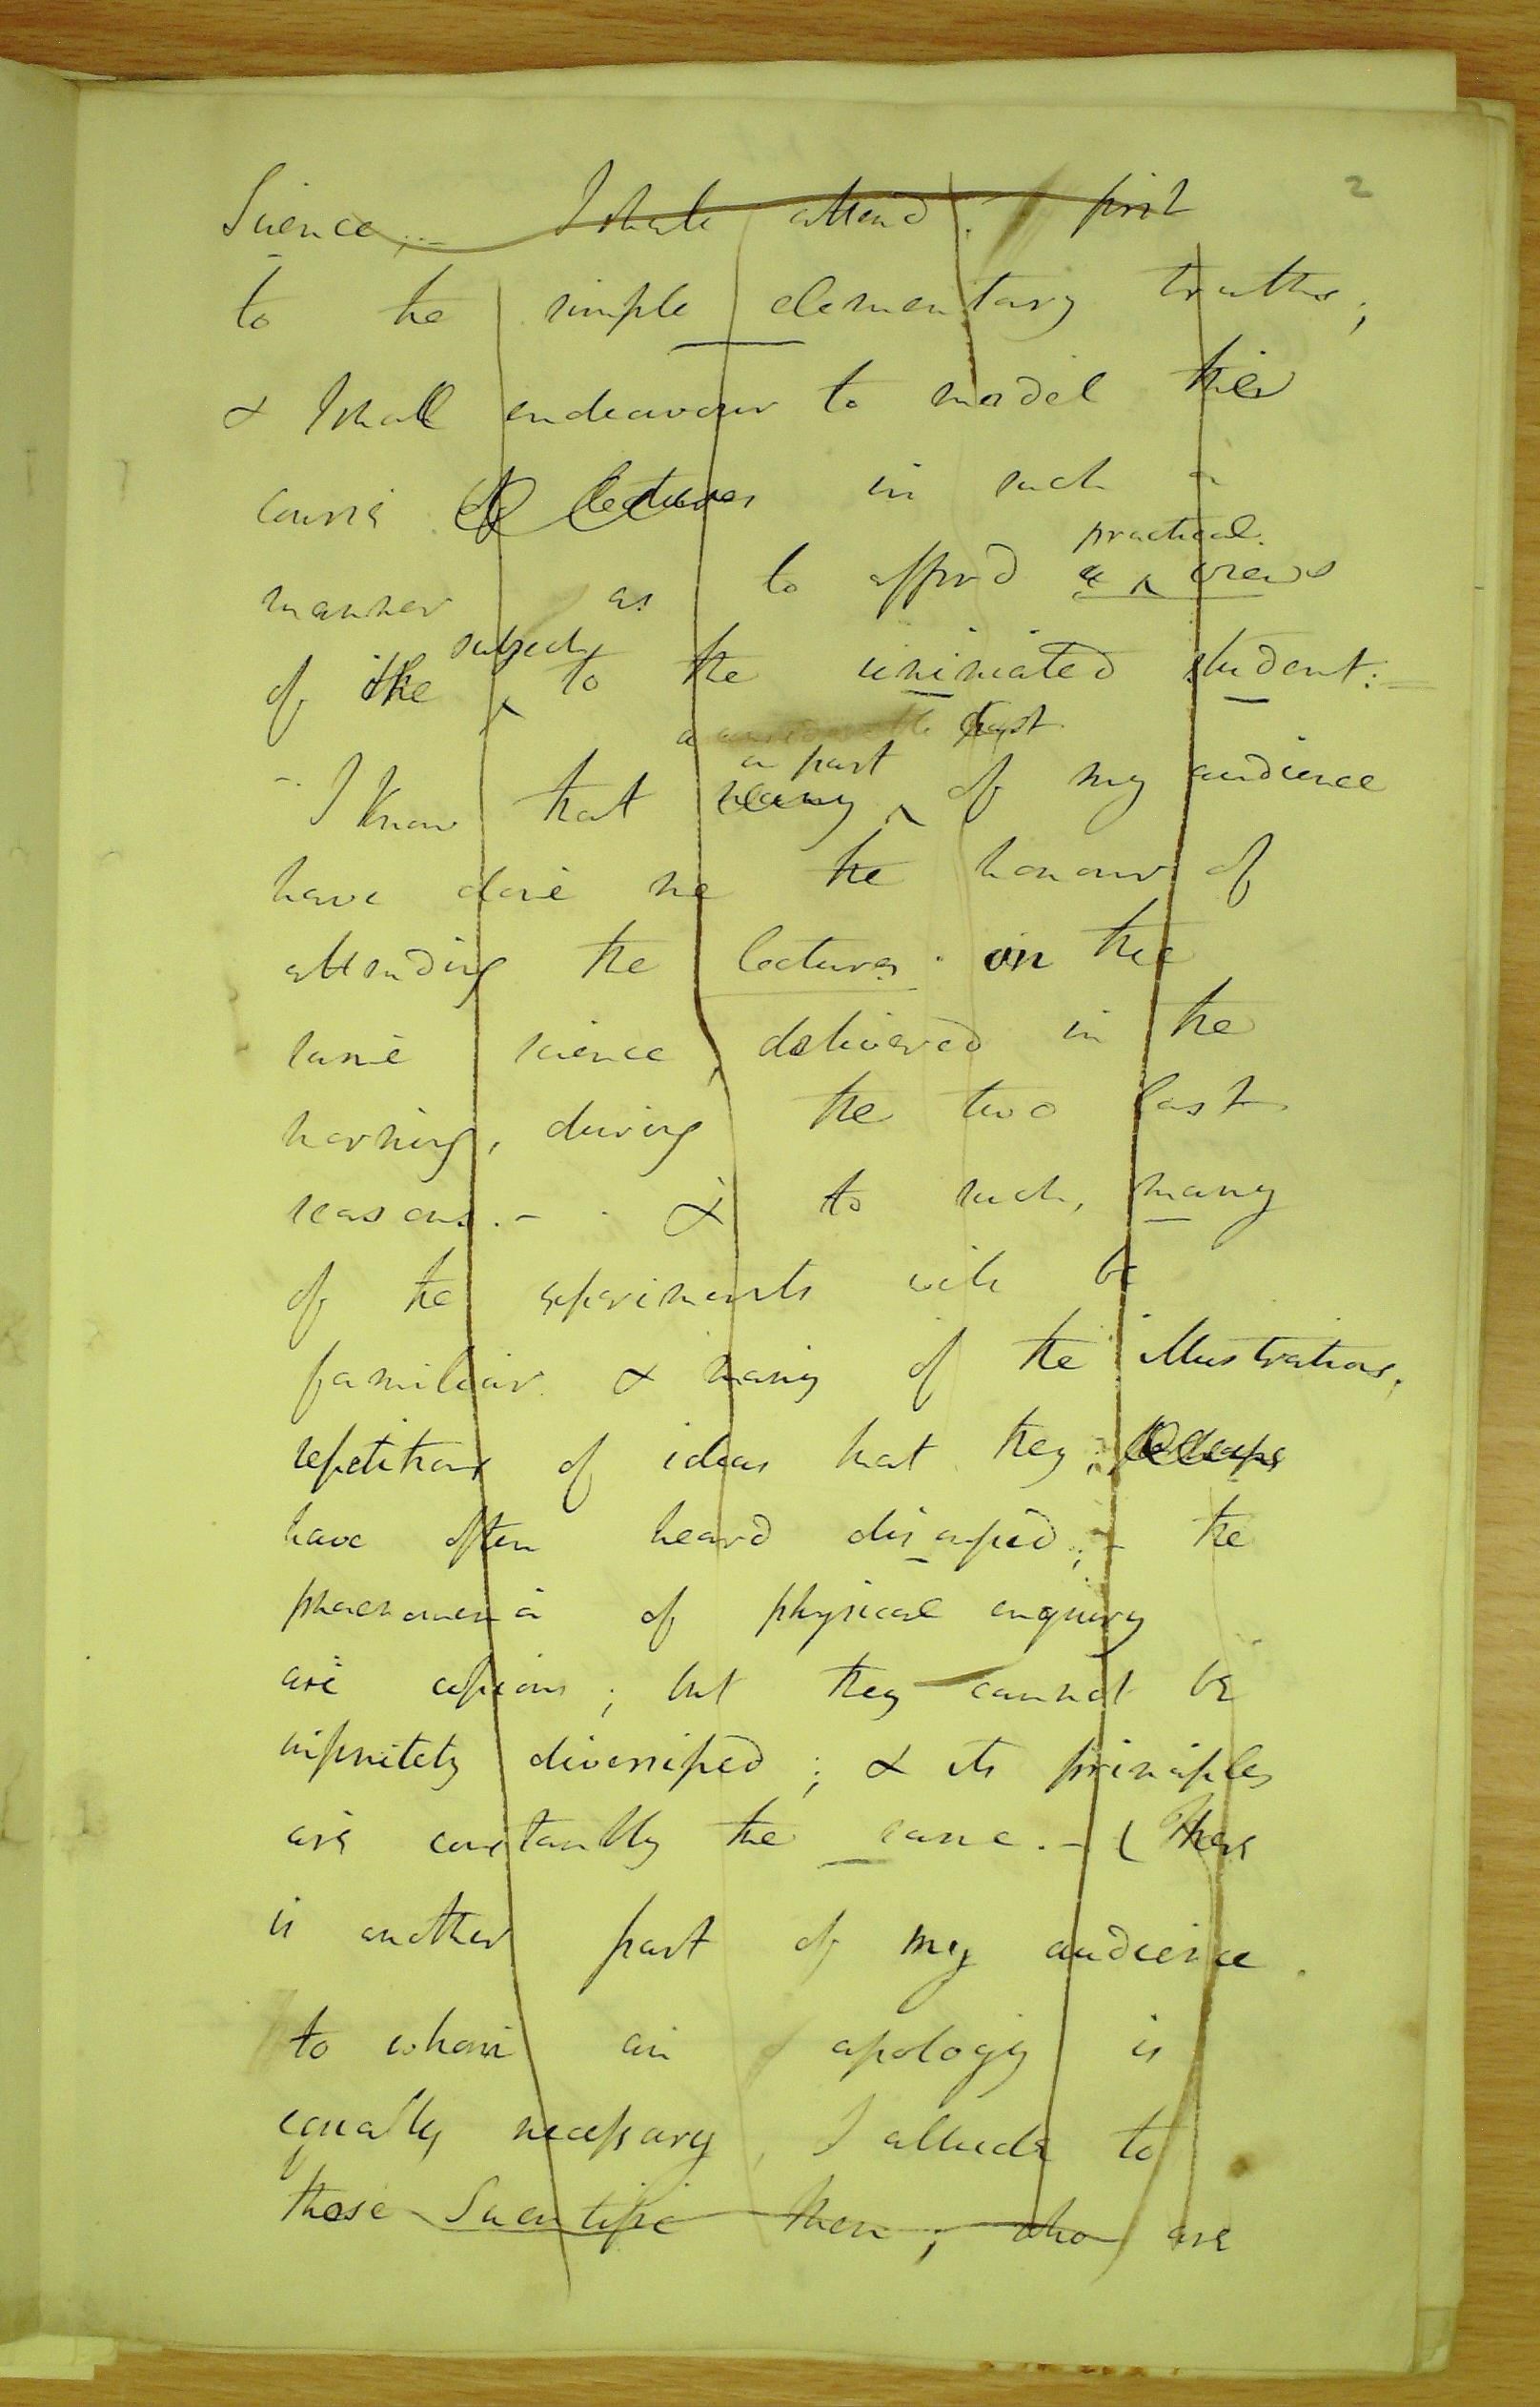 2
Science;- I shall attend first
to the simple elementary truths;
& I shall endeavour to model this
course of lectures in such a
practical.
manner as to afford a ^ views
subject
of the ^ to the uniniated student:-
a considerable part
a part
- I know that many ^ of my audience
have done me the honour of
attending the lectures on the
same science, delivered in the
morning, during the two last
seasons. - & to such, many
of the experiments will be
familiar & many of the illustrations,
repetitions of ideas that they perhaps
have often heard discussed;- the
phaenomena of physical enquiry
are copious; but they cannot be
infinitely diversified; & its principles
are constantly the same. - ( There
is another part of my audience
to whom an apology is
equally necessary, I allude to
those Scientific Men; who are